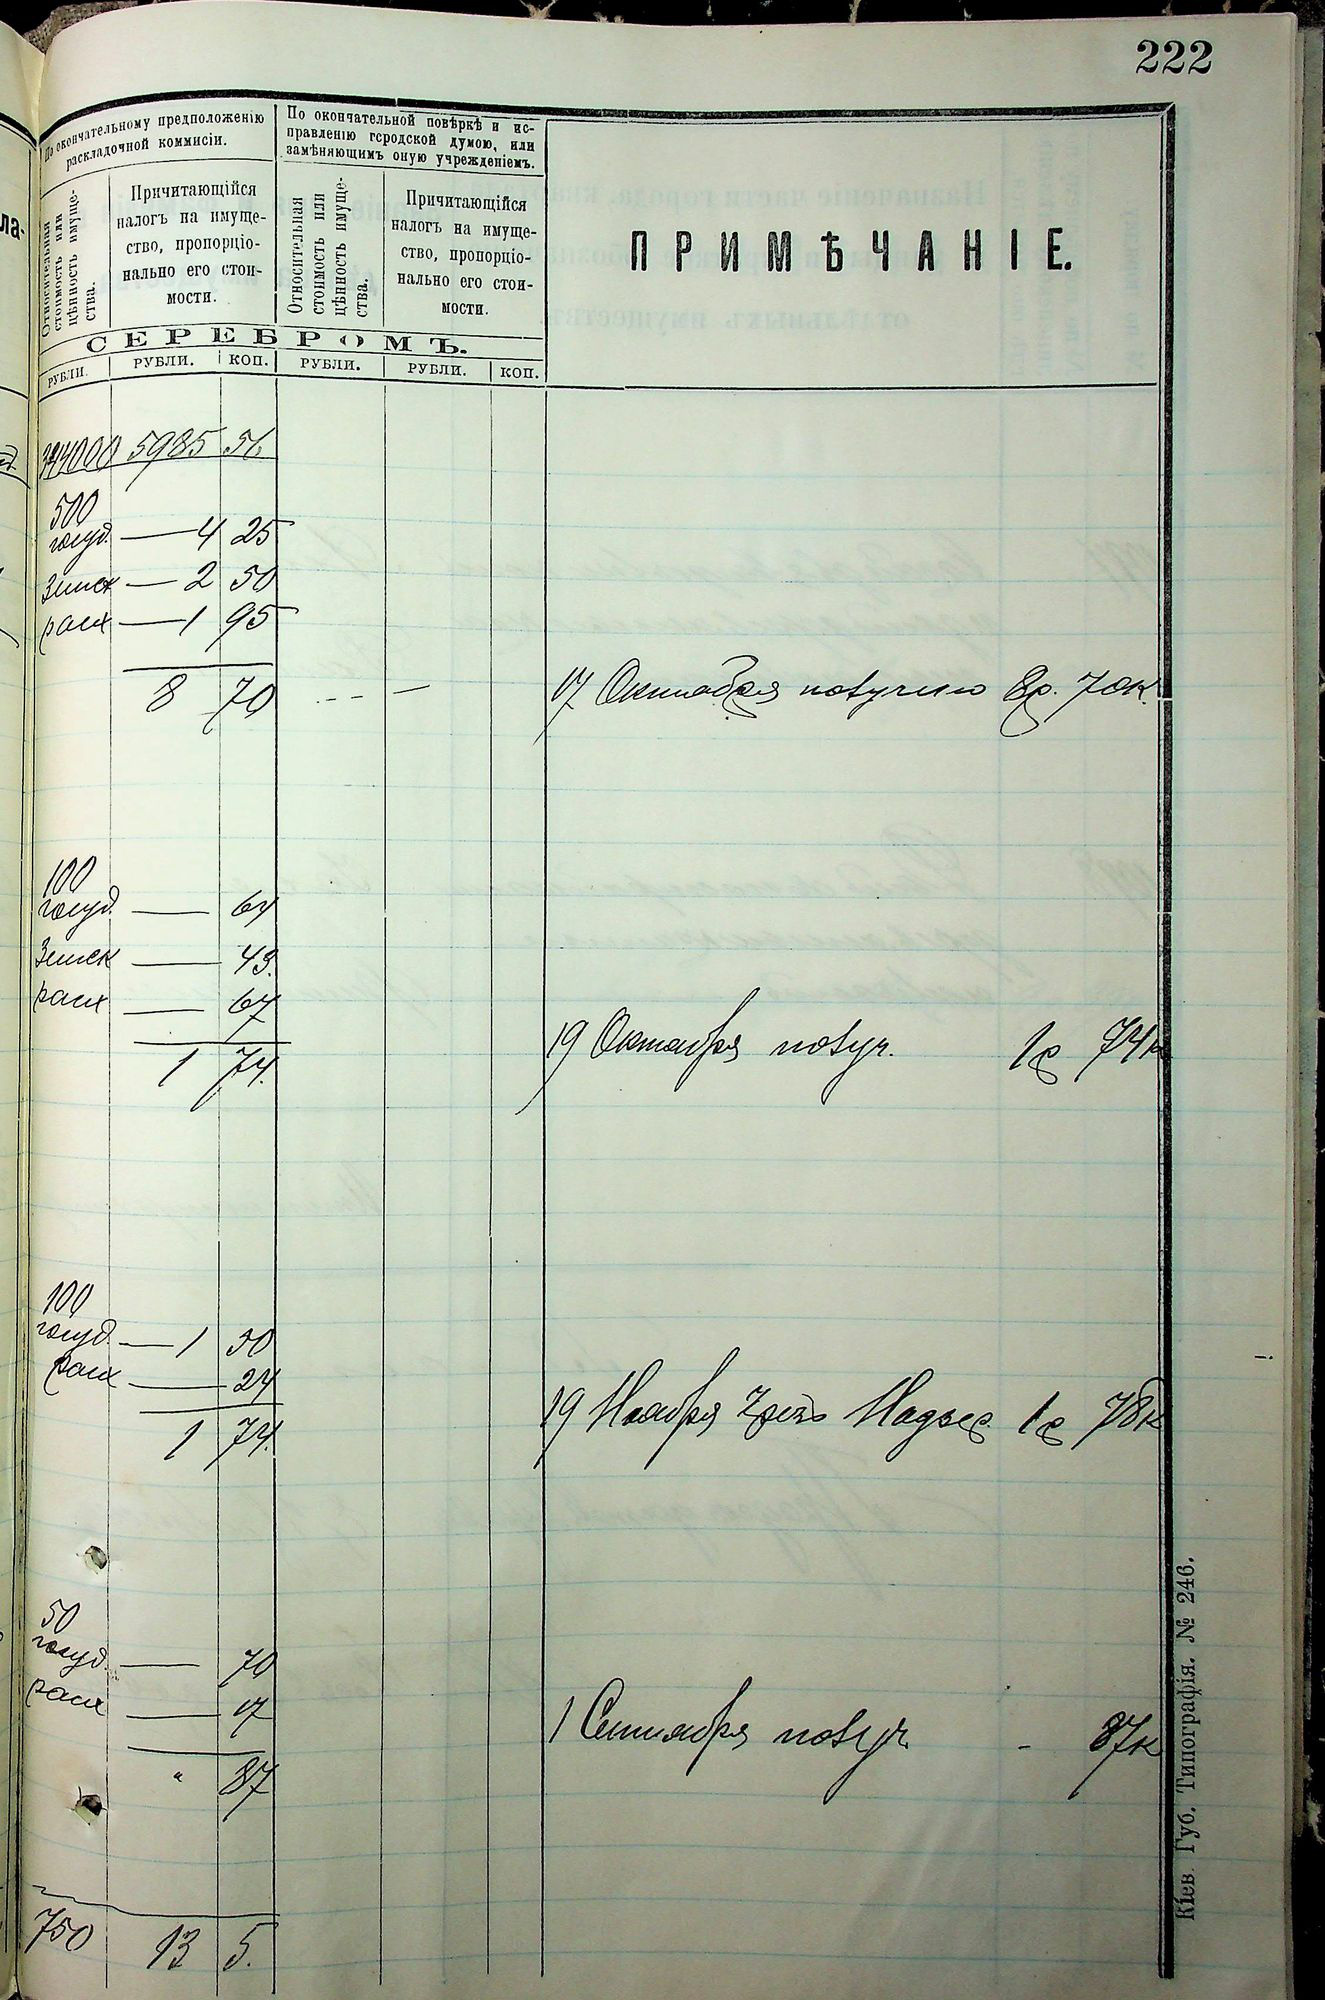 222
По окончательному предположенію
раскладочной коммисіи.
По окончательной повѣркѣ и ис-
правленію городской думою, или
замѣняющимъ оную учрежденіемъ.
Относительная
стоимость или
цѣнность имуще-
ства.
Причитающійся
налогъ на имуще-
ство, пропорціо-
нально его стои-
мости.
Относительная
стоимость или
цѣнность имуще-
ства.
Причитающійся
налогъ на имуще-
ство, пропорціо-
нально его стои-
мости.
ПРИМѢЧАНІЕ.
СЕРЕБРОМЪ.
РУБЛИ. РУБЛИ. КОП. РУБЛИ. РУБЛИ. КОП.
5985 51.
500
госуд. — 4 25
Земск — 2 50
расх — 1 95
8 70 - - —
17 Октября получено 8р. 70к.
100
госуд. — 64
Земск — 43.
расх — 67
1 74.
19 Октября получ. 1р 74к
100
госуд. — 1 50
расх — 24
1 74.
19 Ноября Чрезъ 1р 78к
50
госуд. — 70
расх — 17
" 87
1 Сентября получ. - 87к
750 13 5.
Кіев. Губ. Типографія. № 246.